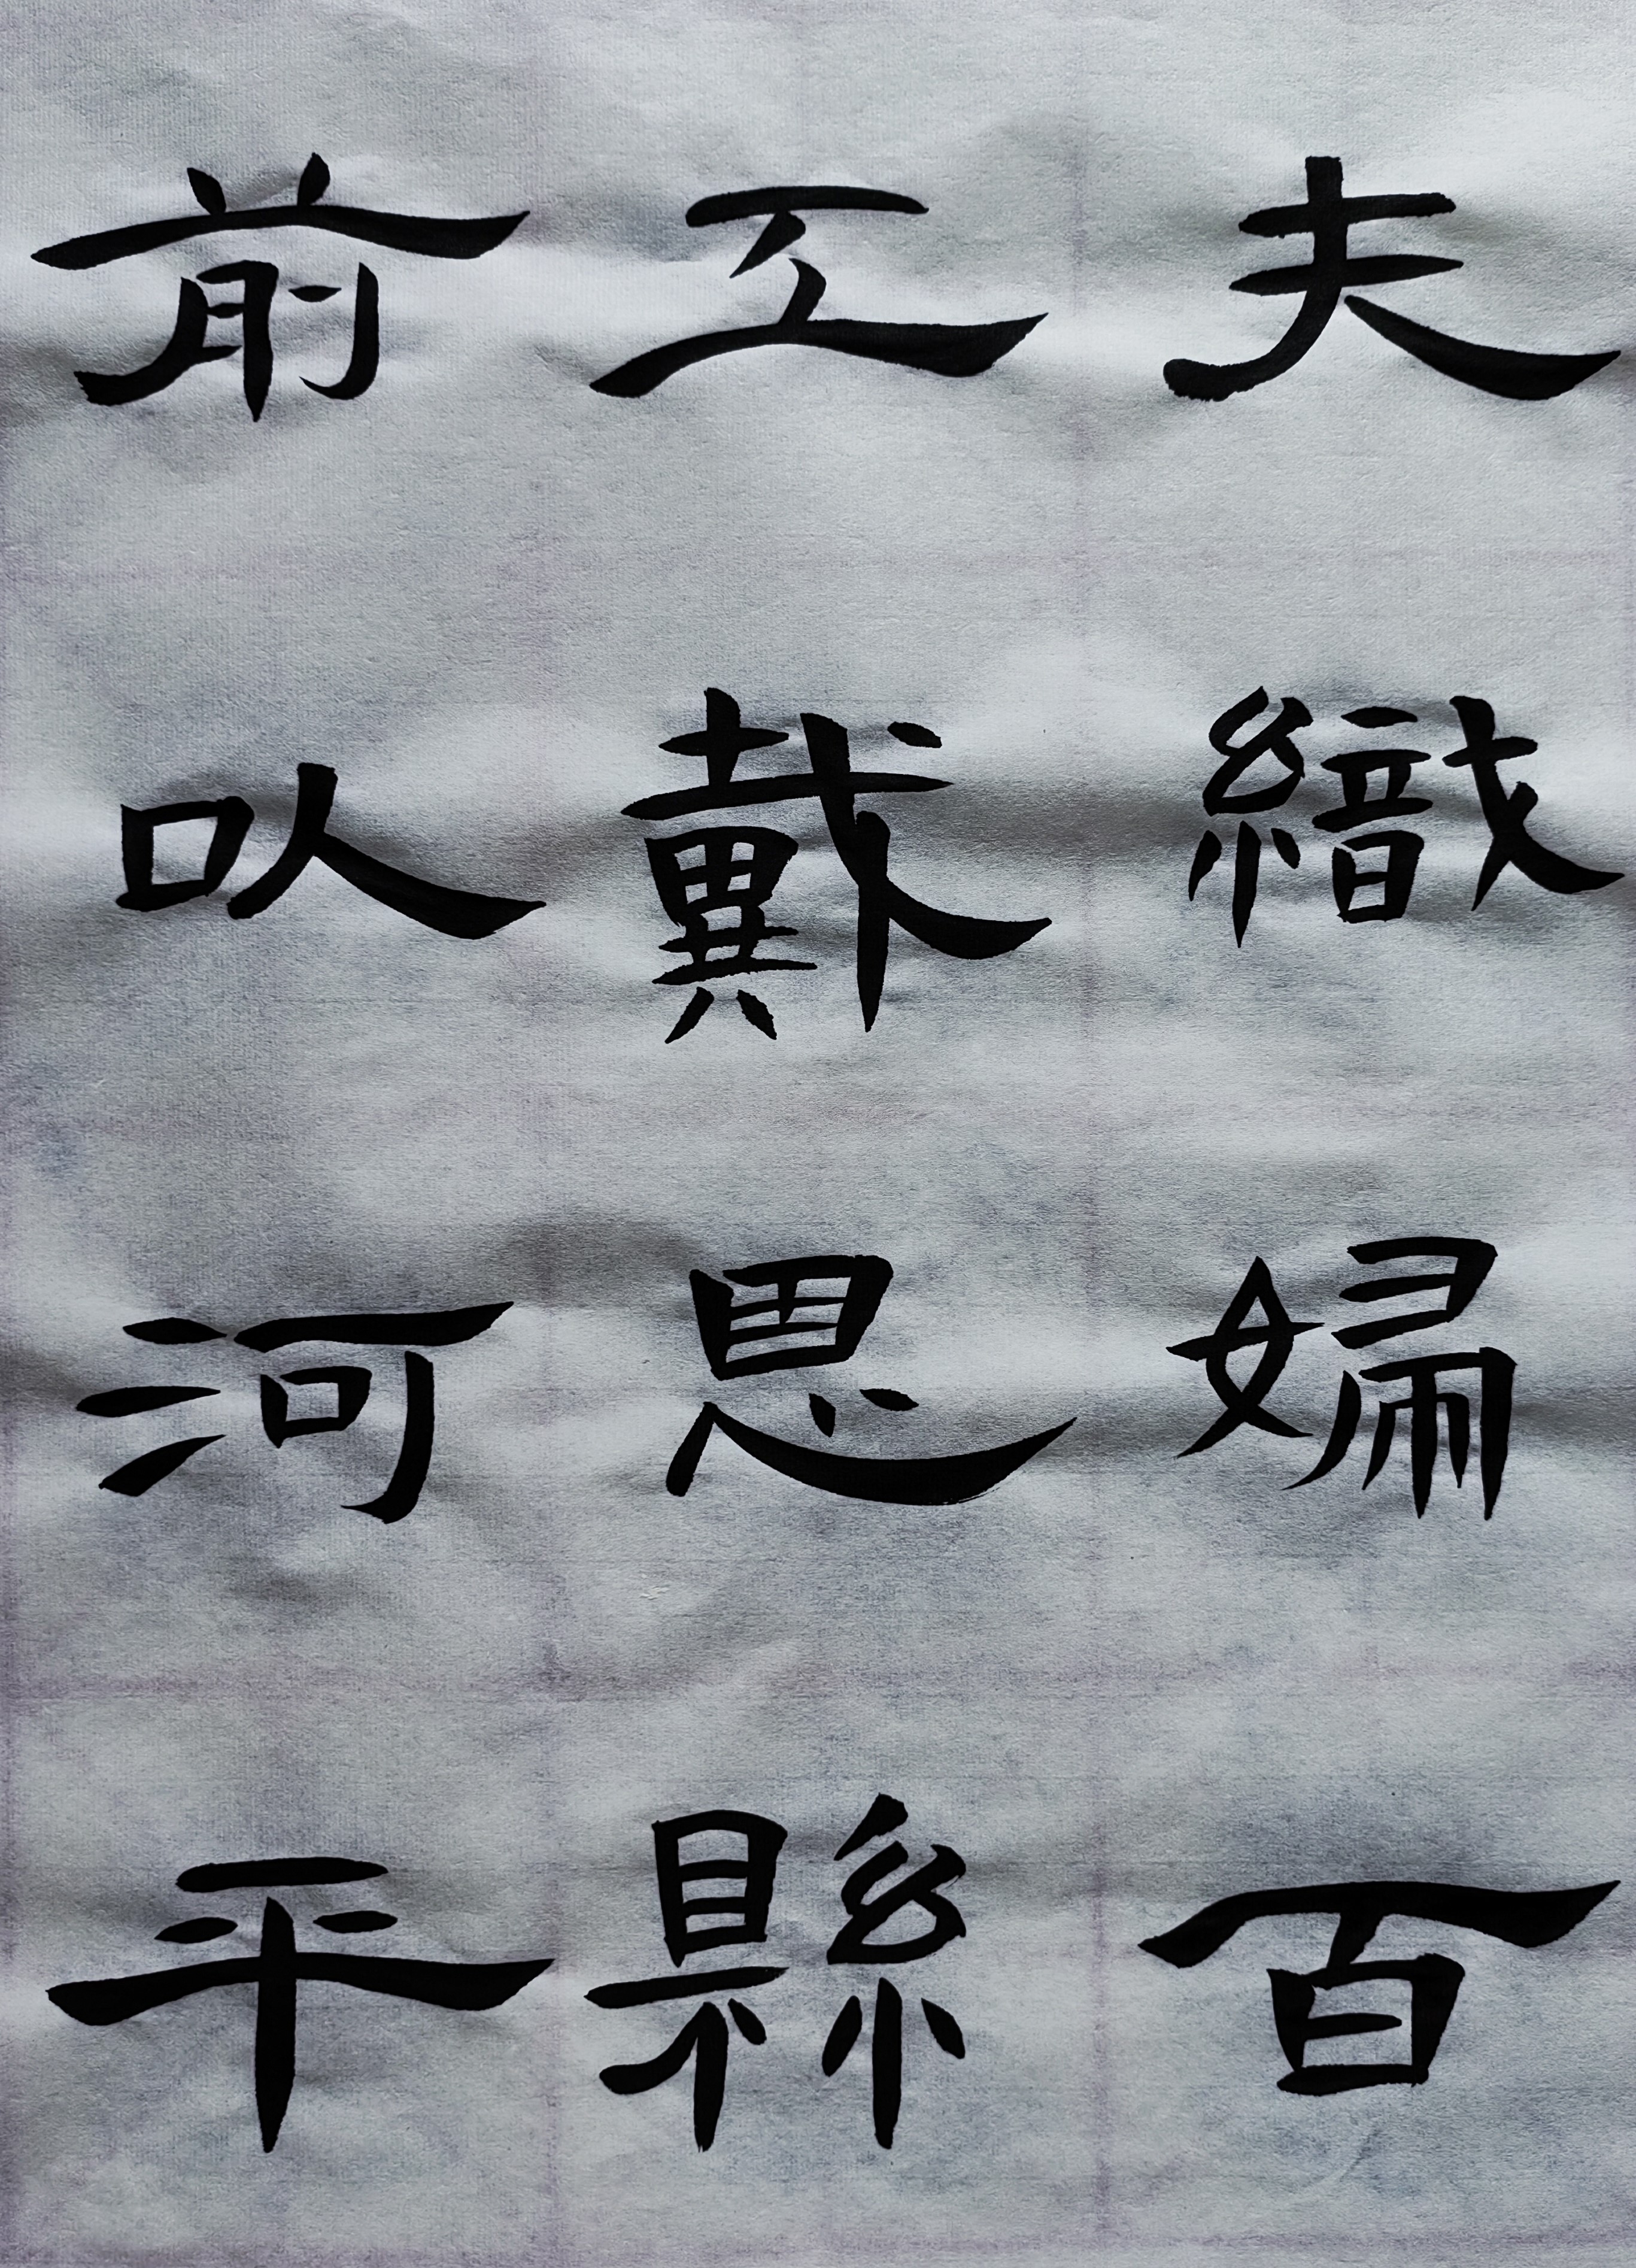 夫織婦百
工戴恩縣
前以河平